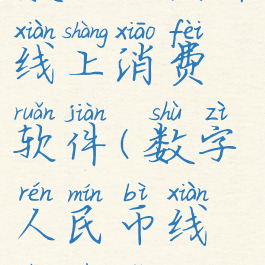 xiàn shàng xiāo fèi
线上消费
ruǎn jiàn shù zì
软件(数字
rén mín bì xiàn
人民币线